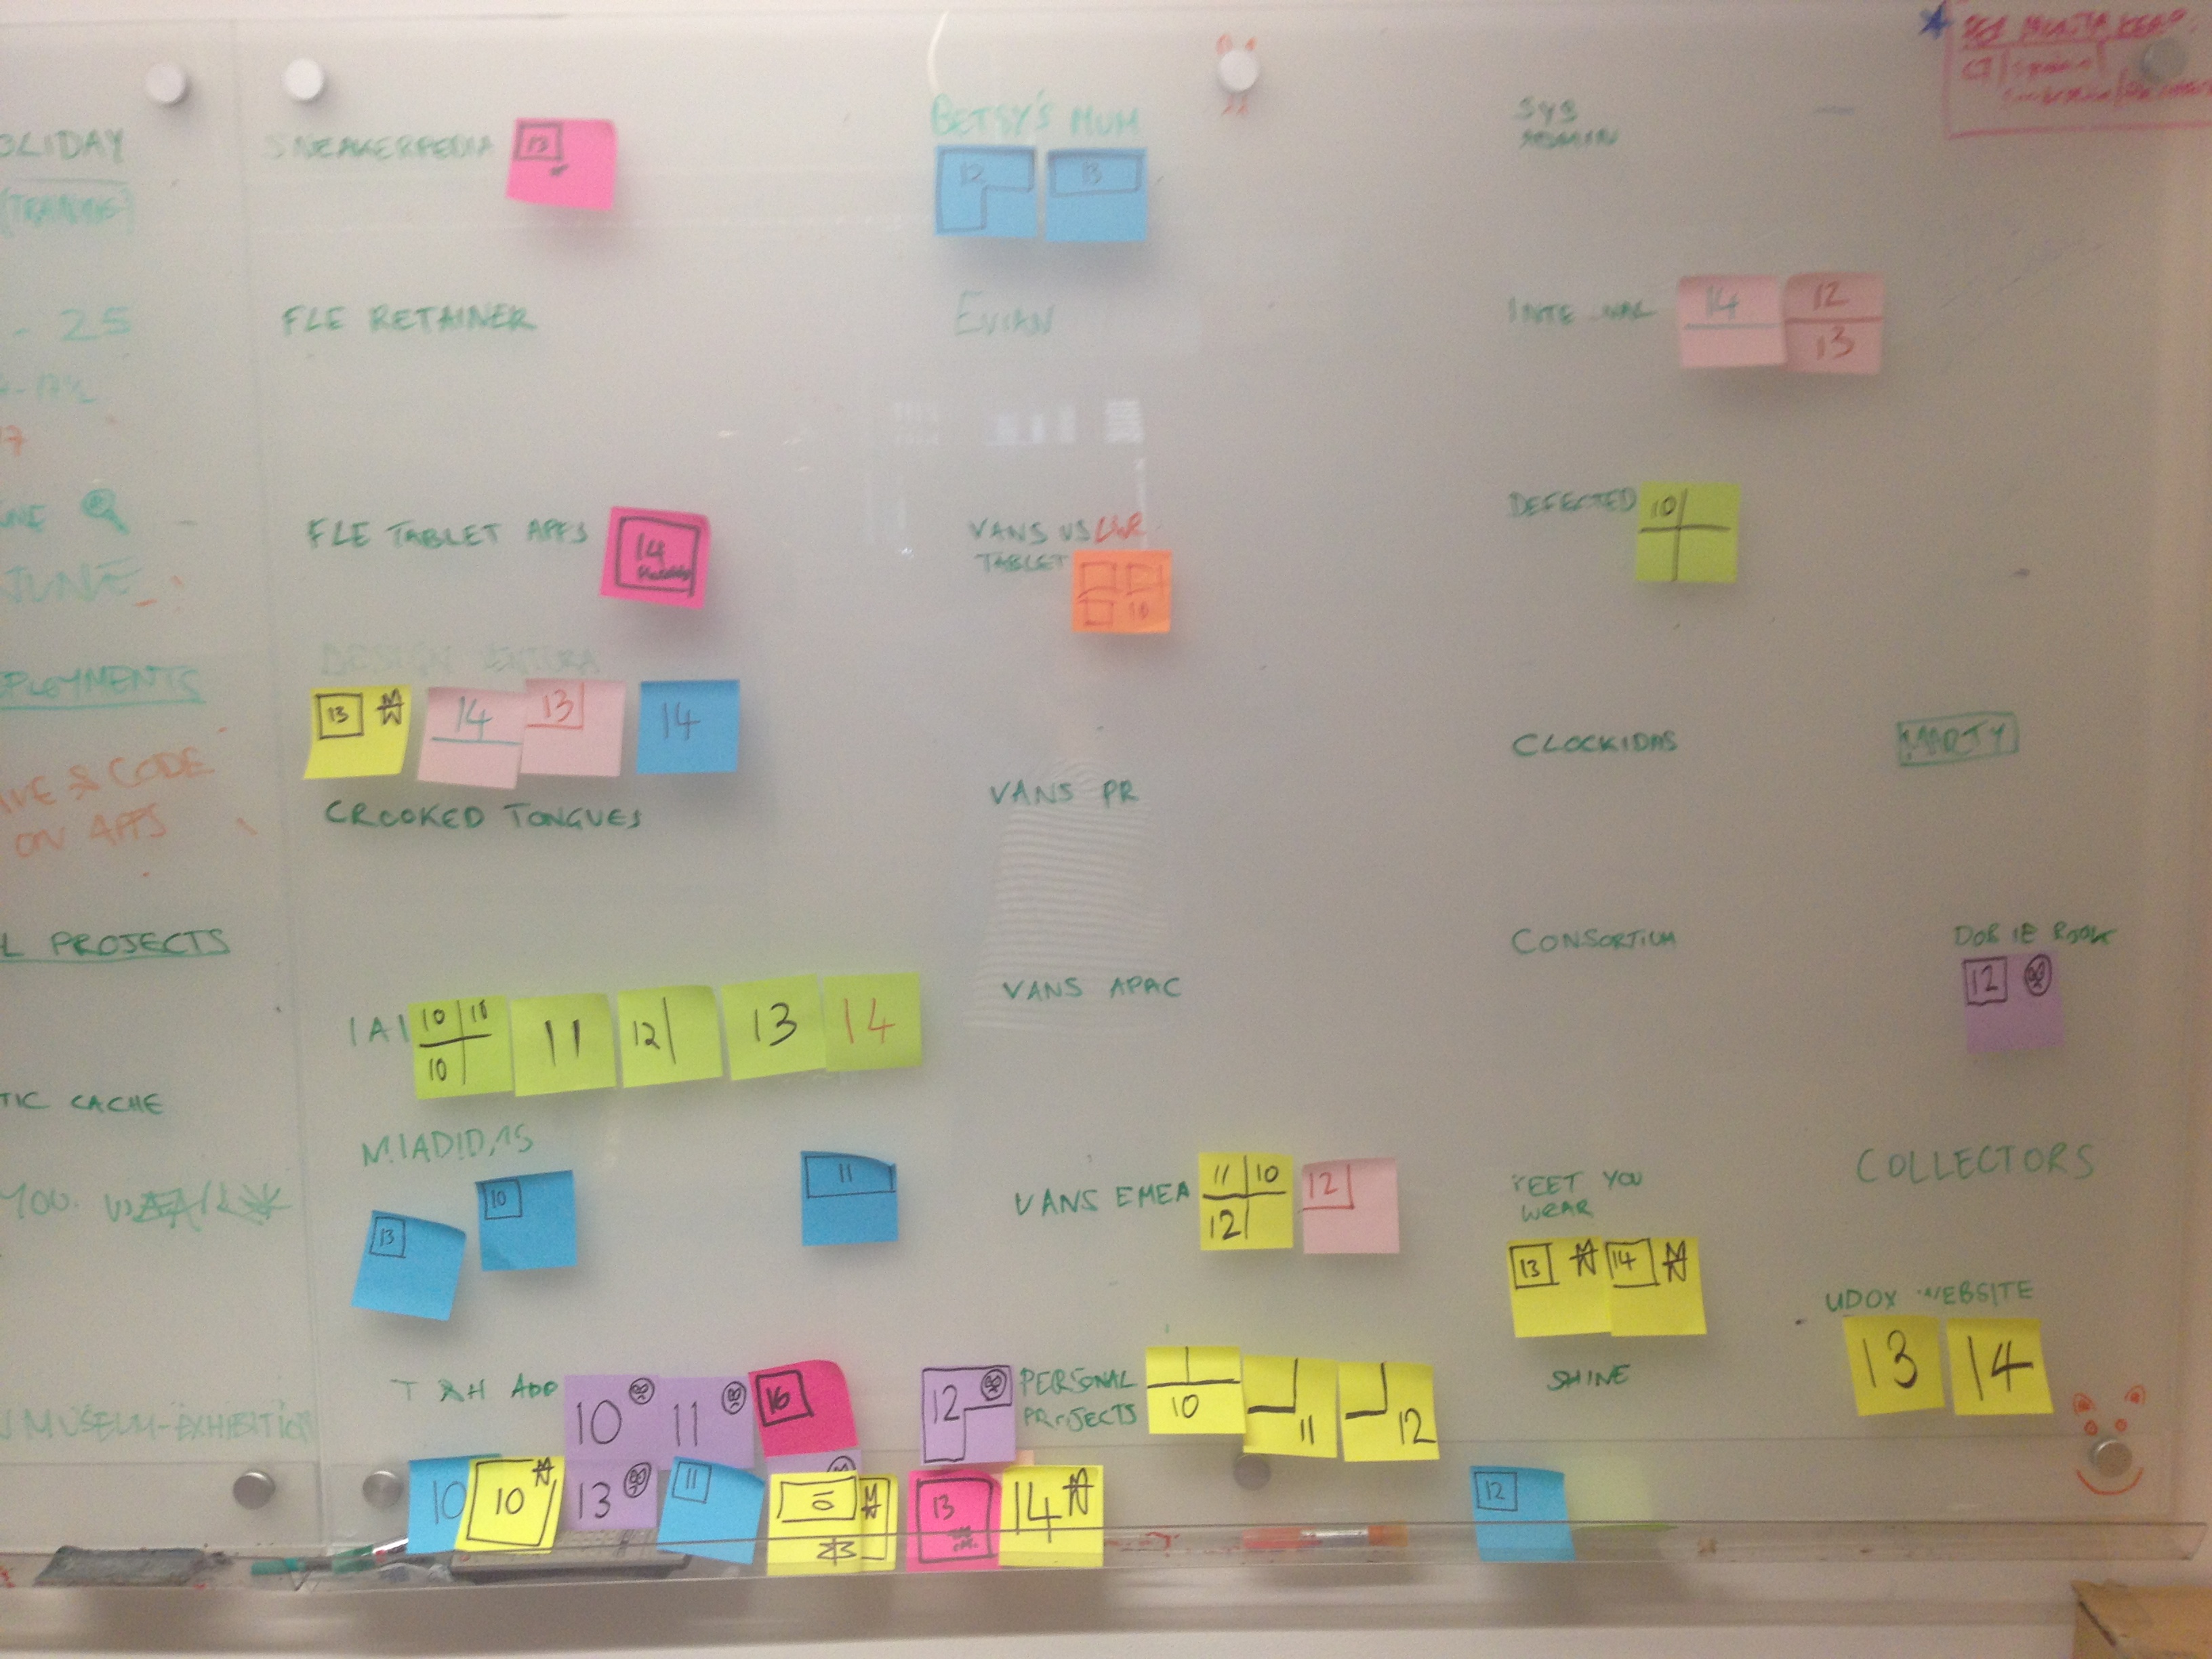 OLIDAY
(TRAINING)
- 25
JUNE
PLOYMENTS
& CODE
ON APPS
L PROJECTS
TIC CACHE
YOU
MUSEUM-EXHIBITION
SNEAKERPEDIA
13
FLE RETAINER
FLE TABLET APPS
14
DESIGN VENTURA
13
14
13
14
CROOKED TONGUES
IAI
10 10
10
11
12
13
14
MIADIDAS
13
10
11
10
11
16
12
10
10
13
11
10
13
14
BETSY'S MUM
12
13
EVIAN
VANS VS
TABLET
10
VANS PR
VANS APAC
VANS EMEA
11 10
12
12
PERSONAL
PROJECTS
10
11
12
SYS
ADMIN
14
12
13
DEFECTED
10
CLOCKIDAS
MARTY
CONSORTIUM
12
YOU
WEAR
13
14
COLLECTORS
UDOX WEBSITE
13
14
SHINE
12